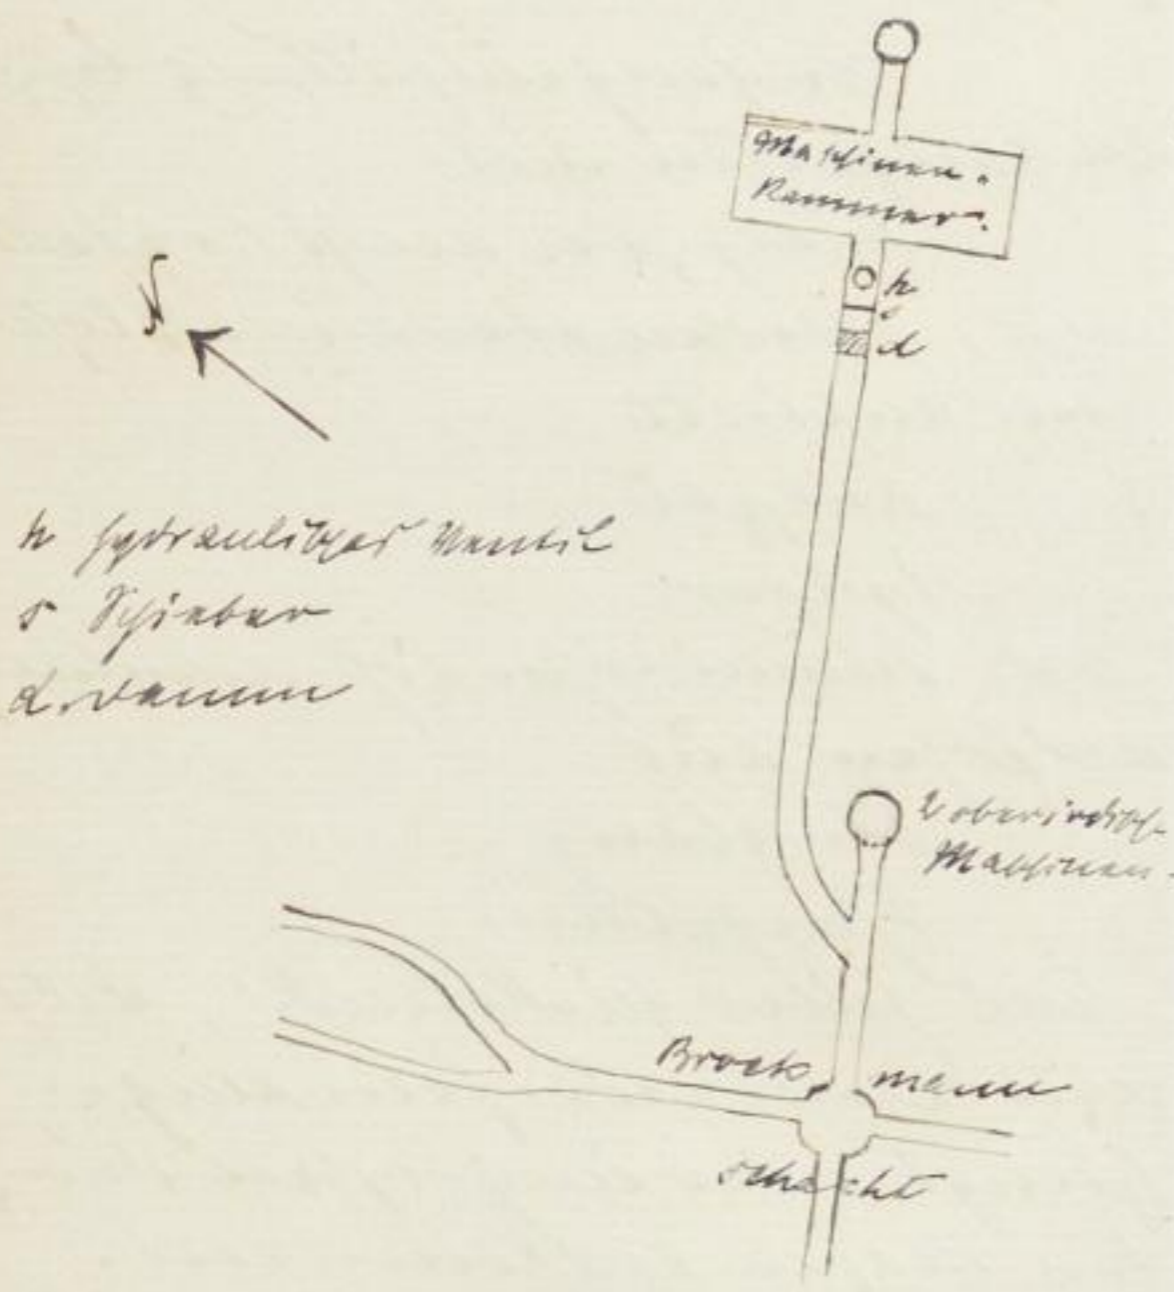 Maschinen-
Kammer.
h
s
d
N
h hydraulisches Ventil
s Schieber
d. Damm
2 oberirdisch.
Maschinen.
Brock mann
schacht